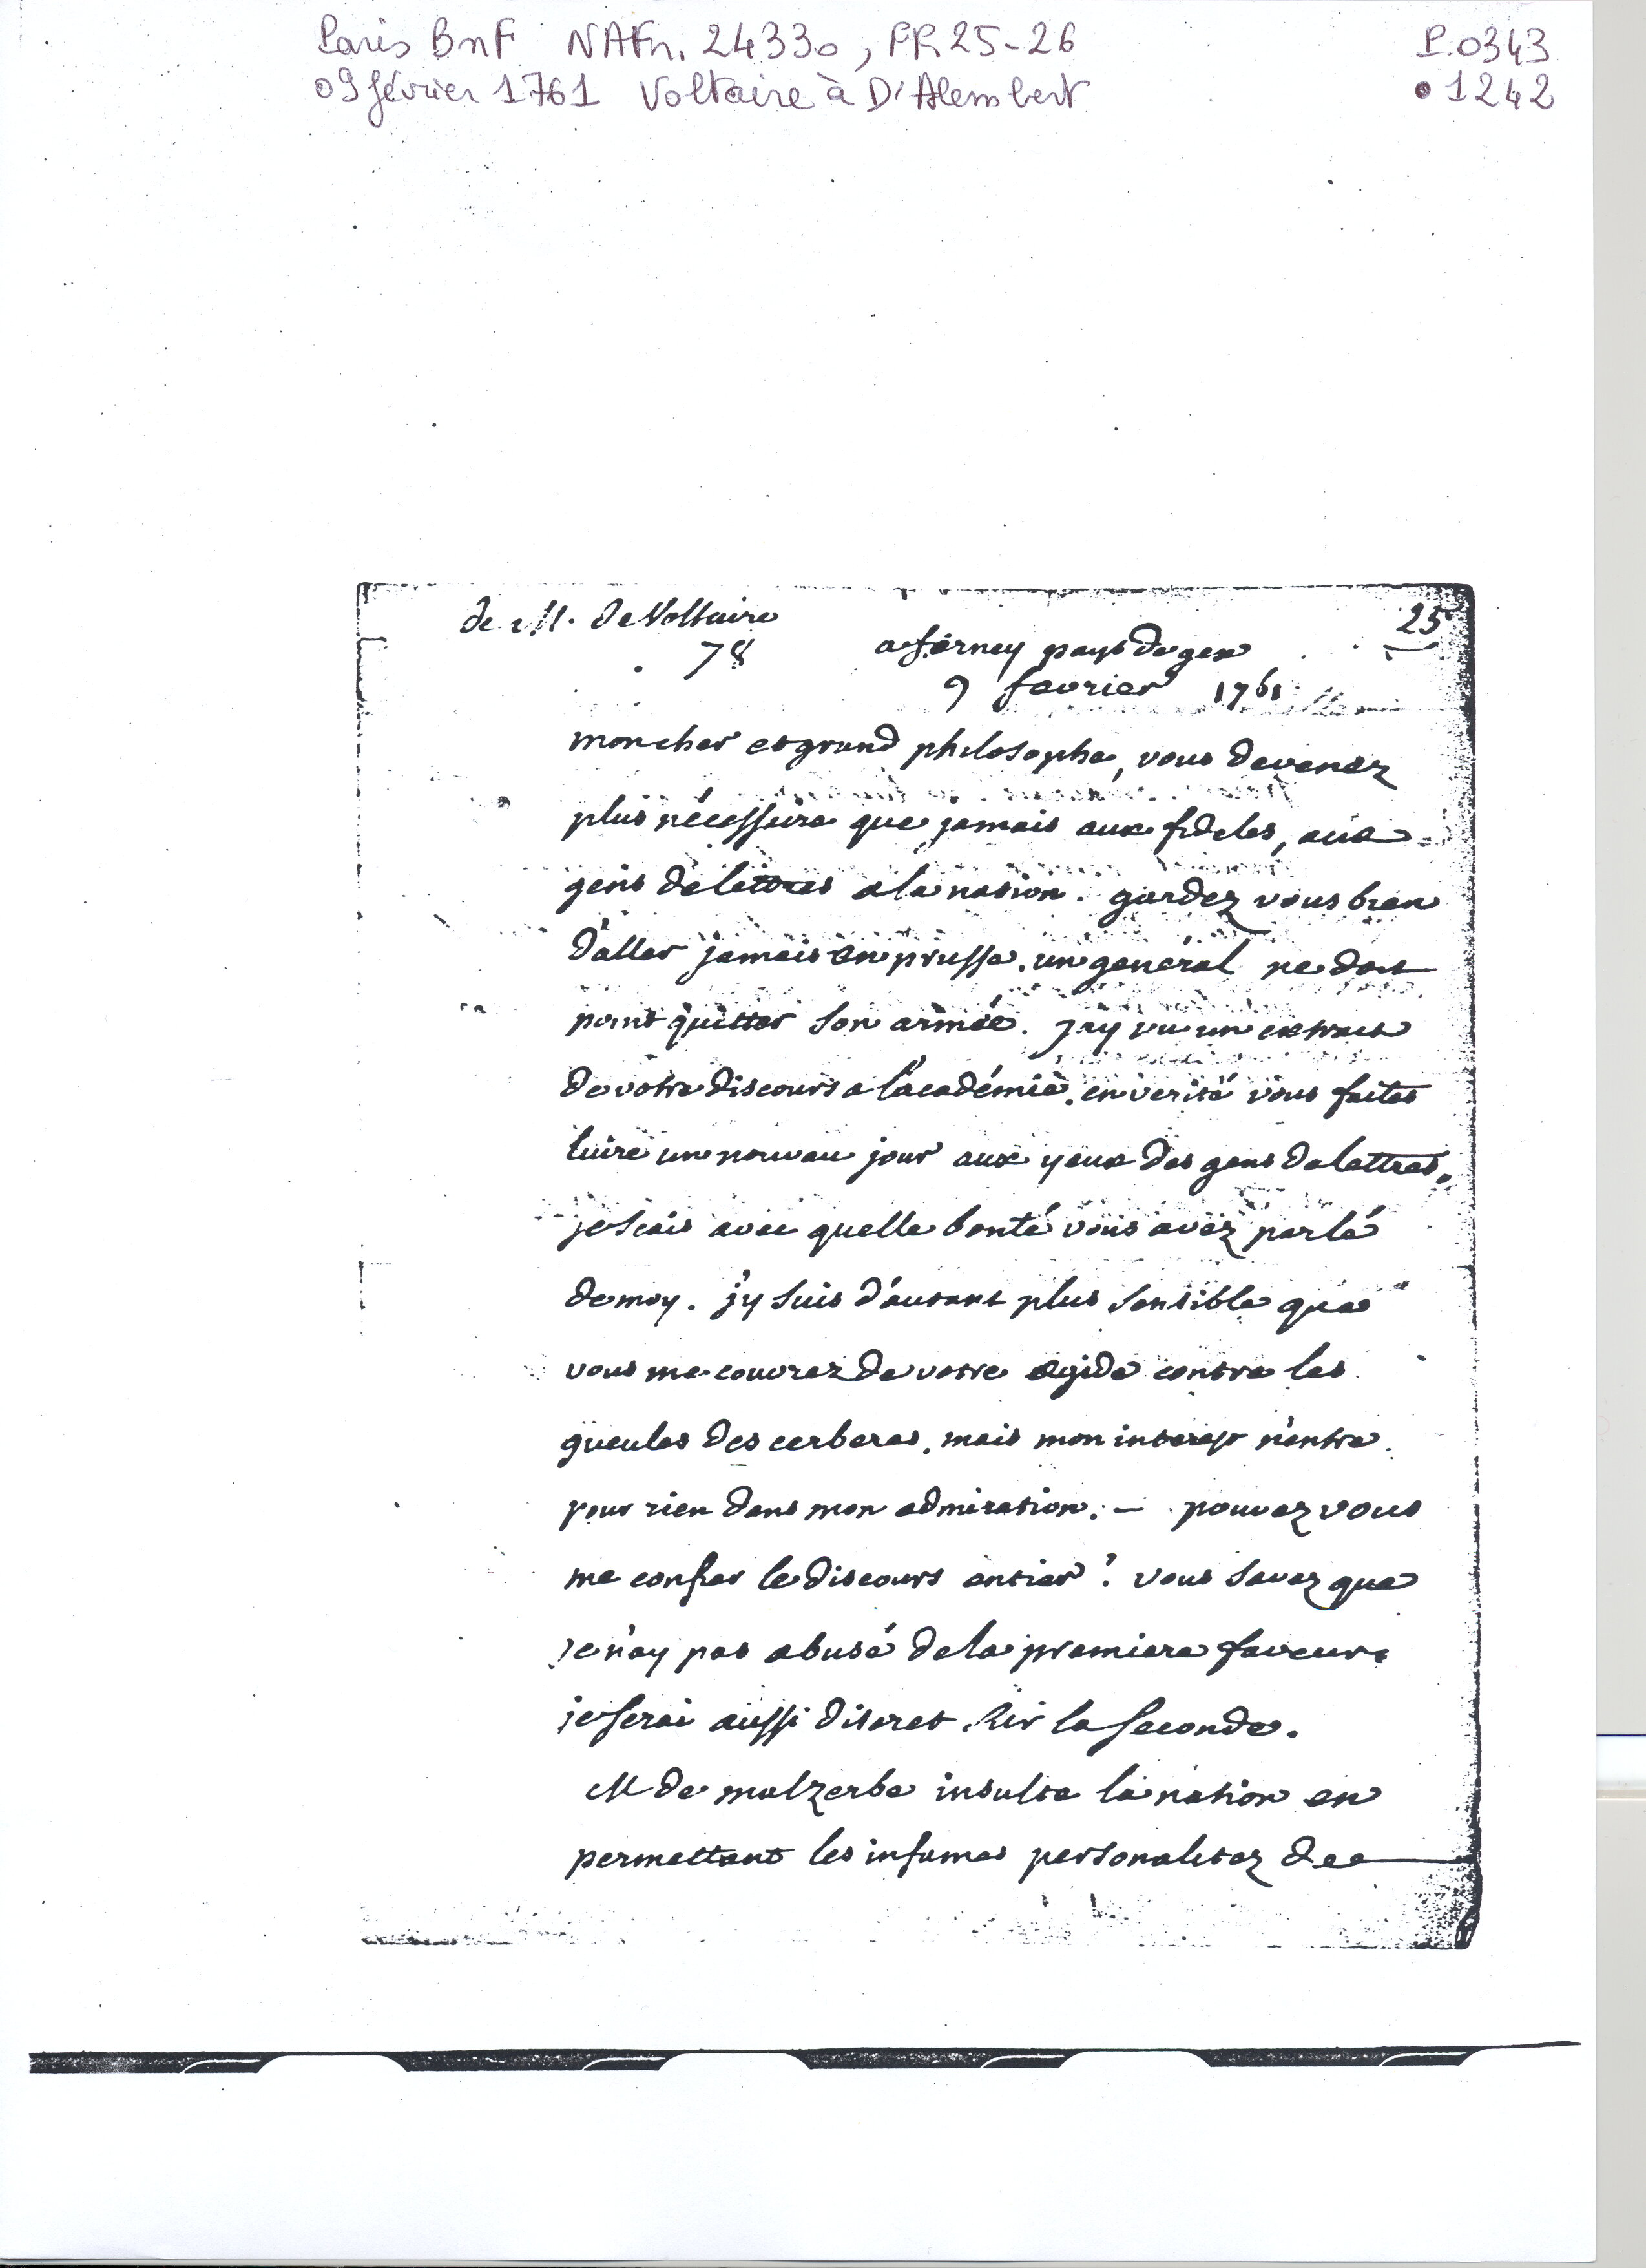 Paris BnF NAFr. 24330, FR 25-26
P.0343
09 février 1761 Voltaire à D'Alembert
1242
de M. de Voltaire
25
78
a ferney pays de gex
9 fevrier 1761
mon cher et grand philosophe, vous devenez
plus nécessaire que jamais aux fideles, aux
gens de lettres a la nation. gardez vous bien
d'aller jamais en prusse. un general ne doit
point quitter son armée. j'ay vu un extrait
de votre discours a l'académie. en verité vous faites
luire un nouvau jour aux yeux des gens de lettres.
je scais avec quelle bonté vous avez parlé
de moy. j'y suis d'autant plus sensible que
vous me couvrez de votre egide contre les
gueules des cerberes. mais mon interest n'entre
pour rien dans mon admiration. — pouvez vous
me confier le discours entier? vous savez que
je n'ay pas abusé de la premiere faveur.
je serai aussi discret sur la seconde.
M de malzerbe insulte la nation en
permettant les infames personalitez de